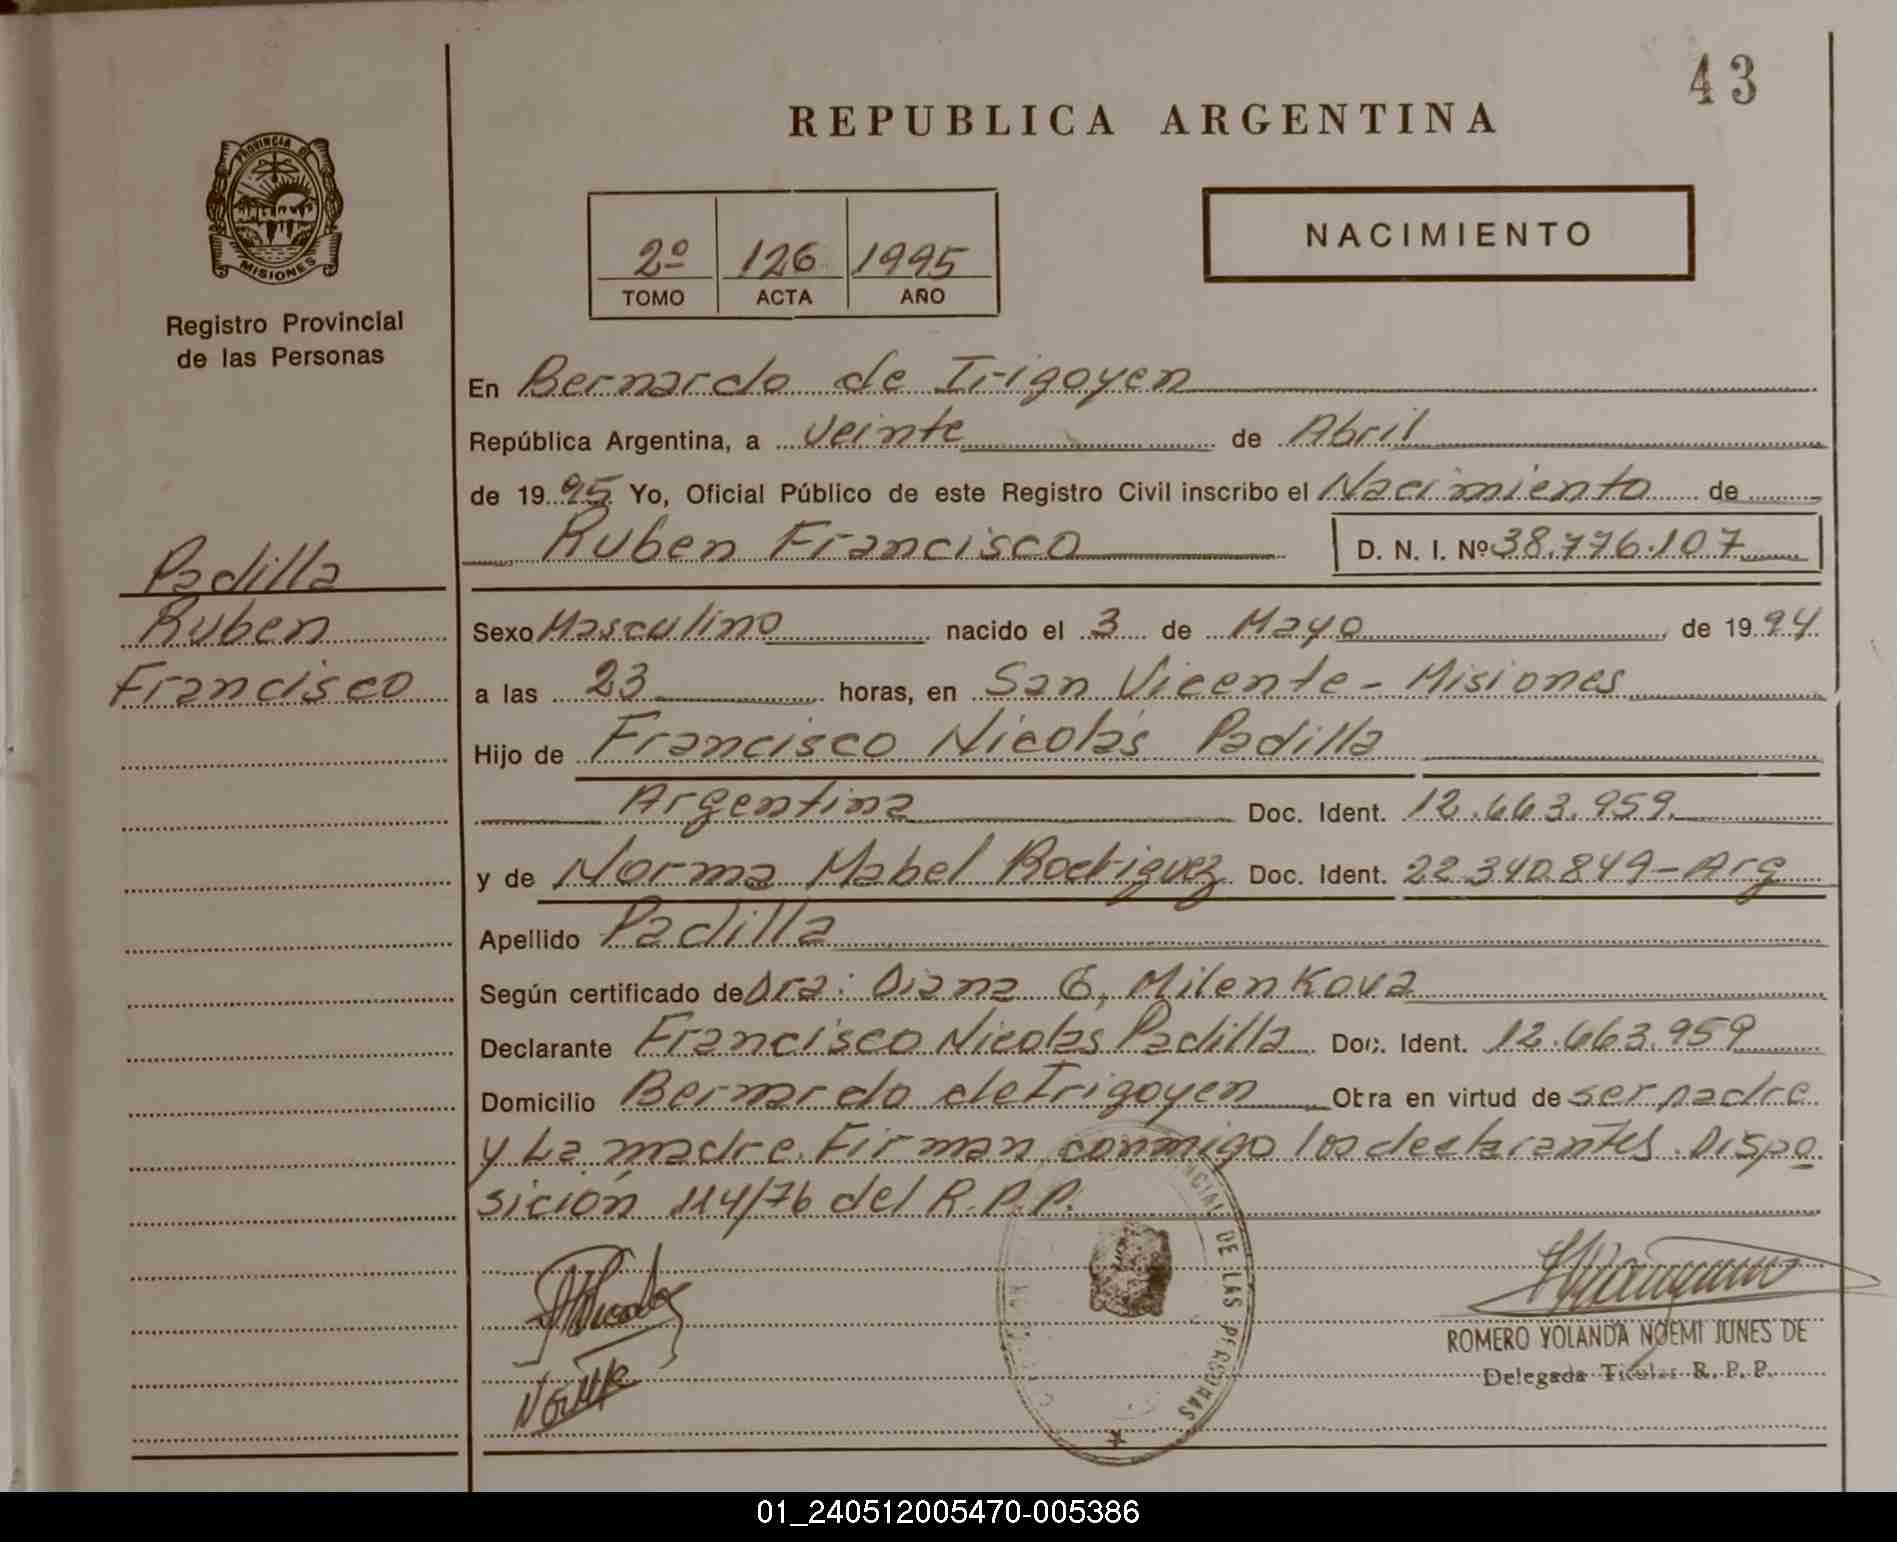 43
REPUBLICA ARGENTINA
PROVINCIA DE
MISIONES
Registro Provincial
de las Personas
2º 126 1995
TOMO ACTA AÑO
NACIMIENTO
En Bernardo de Irigoyen
República Argentina, a Veinte de Abril
de 1995 Yo, Oficial Público de este Registro Civil inscribo el Nacimiento de
Ruben Francisco D. N. I. Nº 38.776.107
Padilla
Ruben
Francisco
Sexo Masculino nacido el 3 de Mayo de 1994
a las 23 horas, en San Vicente - Misiones
Hijo de Francisco Nicolás Padilla
Argentina Doc. Ident. 12.663.959.
y de Norma Mabel Rodriguez Doc. Ident. 22.340.849 - Arg
Apellido Padilla
Según certificado de Dra: Diana G, Milenkova
Declarante Francisco Nicolas Padilla Doc. Ident. 12.663.959
Domicilio Bernardo de Irigoyen Obra en virtud de ser padre
y La madre. Firman conmigo los declarantes. Dispo
sición 114/76 del R.P.P.
DE LAS PERSONAS
ROMERO YOLANDA NOEMI JUNES DE
Delegada Titular R. P. P.
01_240512005470-005386